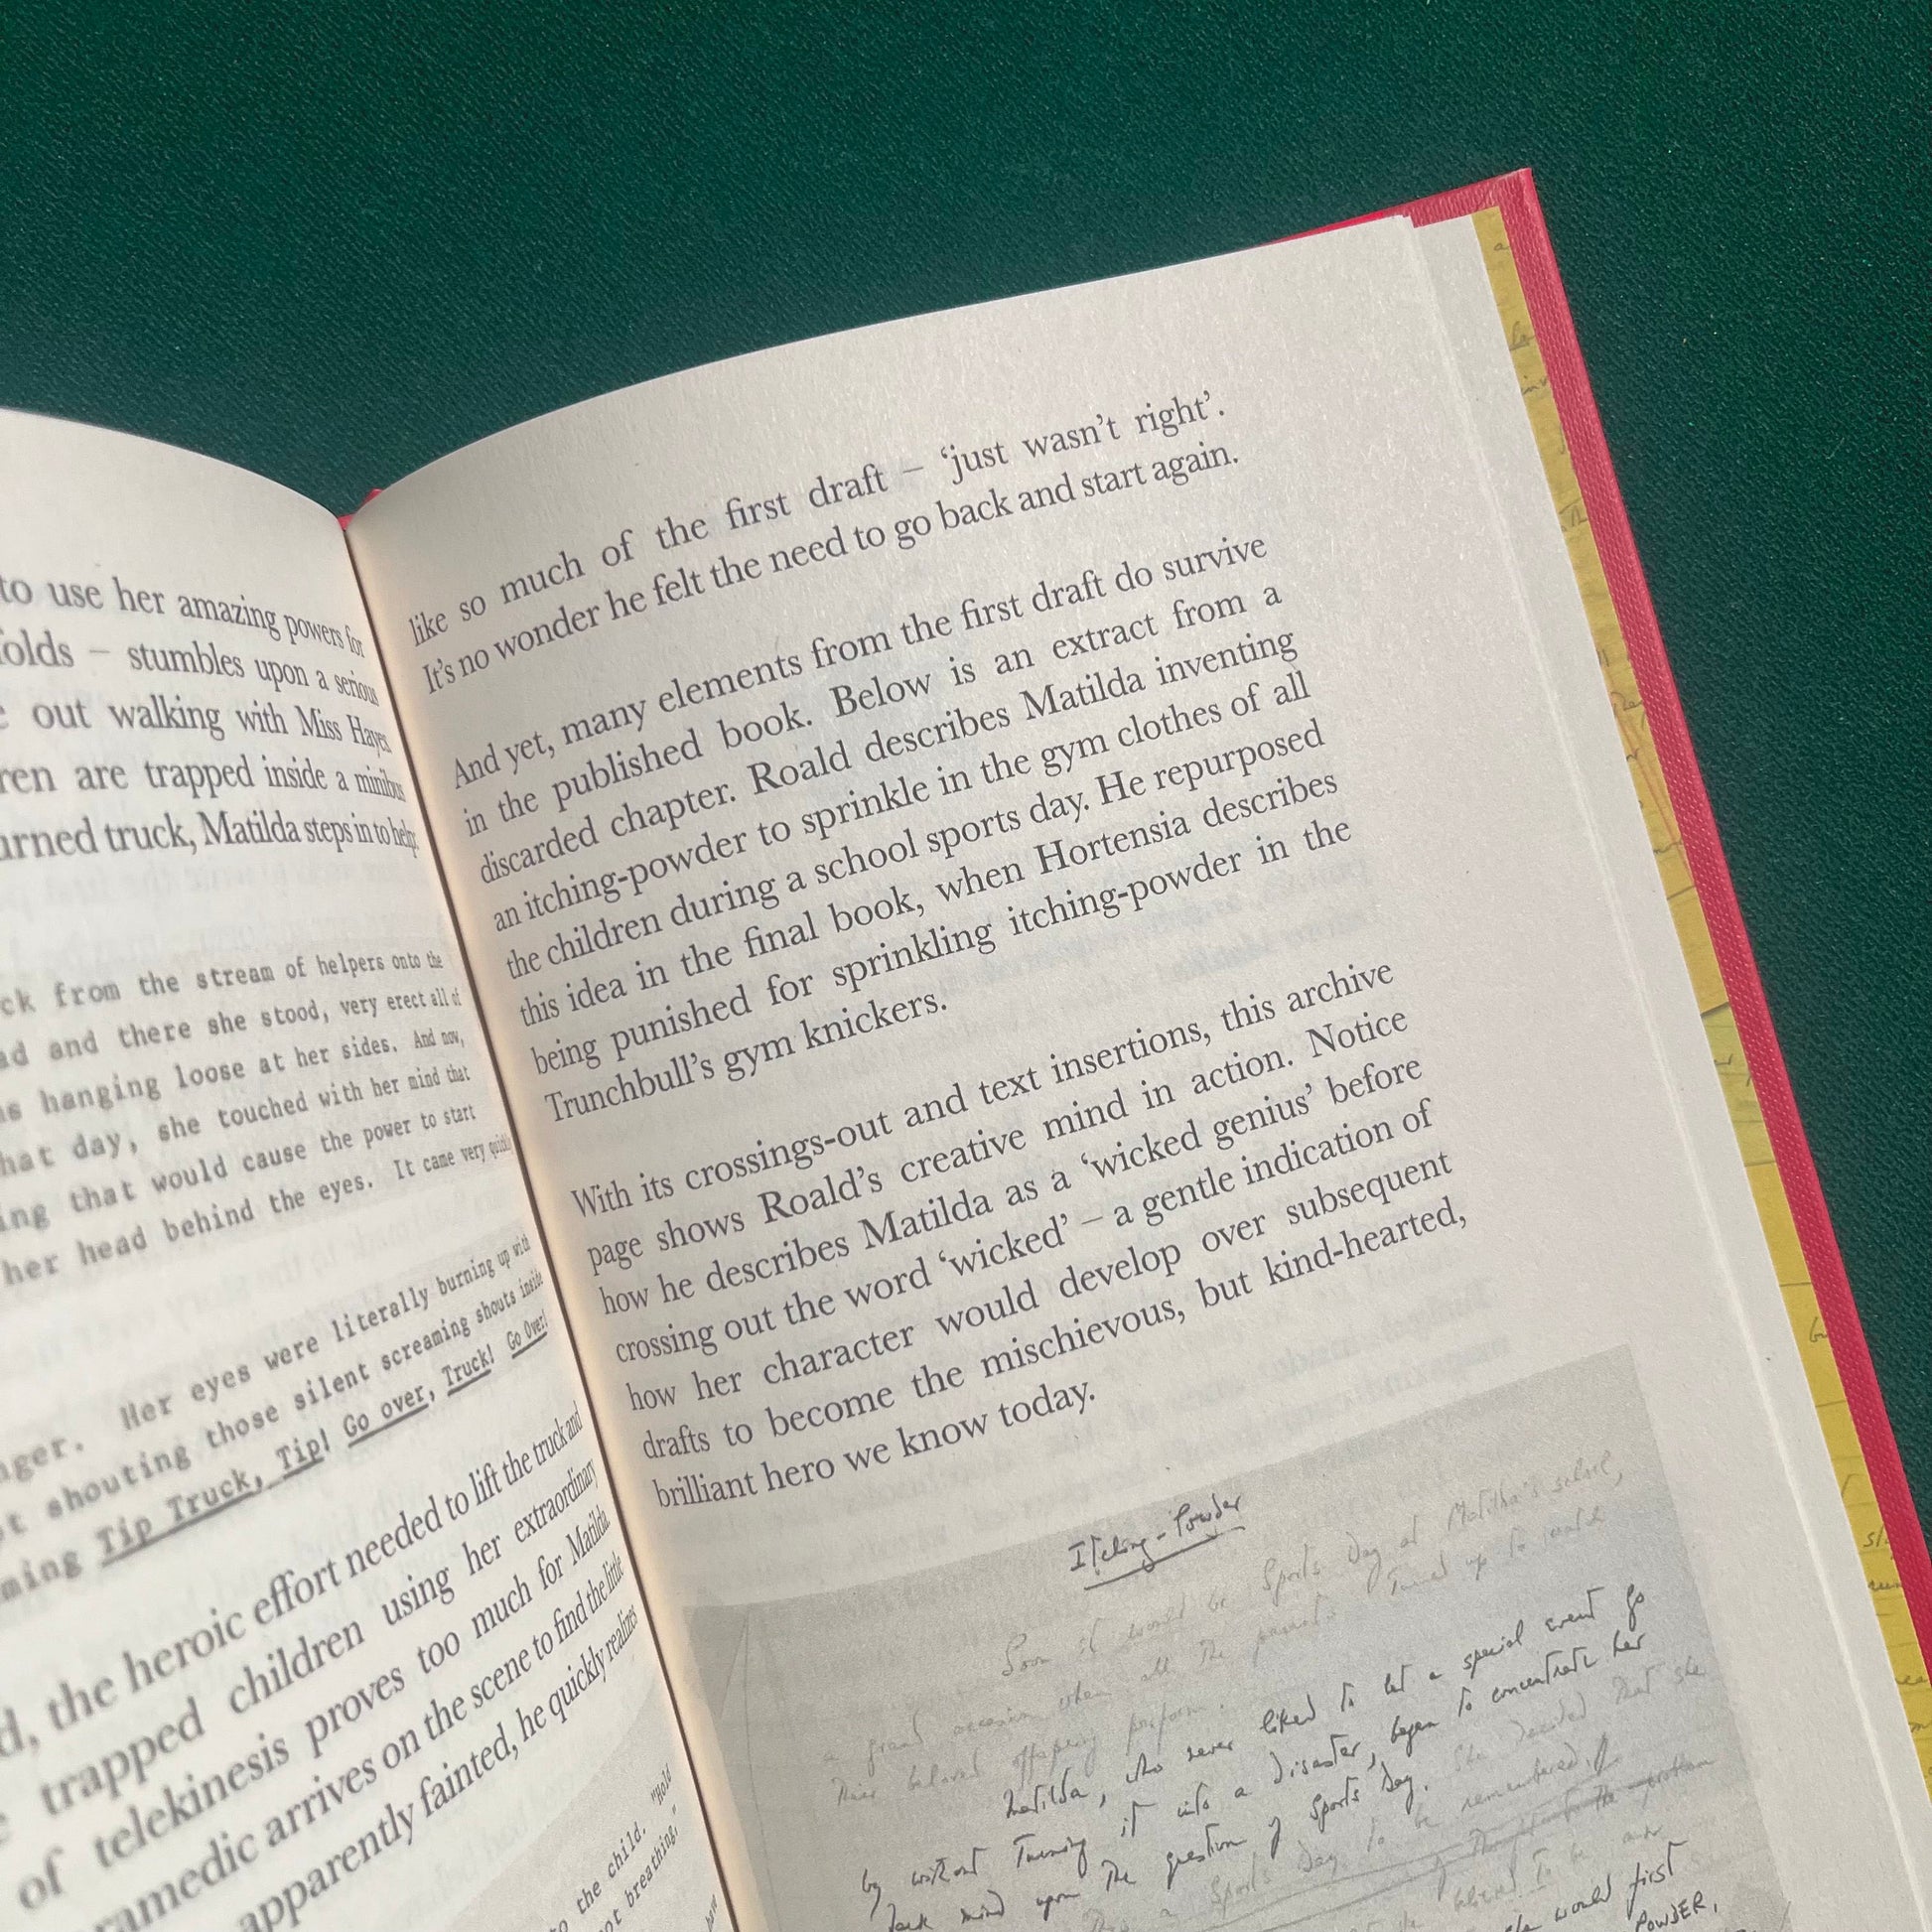 to use her amazing powers for
folds – stumbles upon a serious
out walking with Miss Hayes
ren are trapped inside a minibus
urned truck, Matilda steps in to help.
ck from the stream of helpers onto the
ad and there she stood, very erect all of
hanging loose at her sides. And now,
hat day, she touched with her mind that
ing that would cause the power to start
her head behind the eyes. It came very quickly
nger. Her eyes were literally burning up with
ot shouting those silent screaming shouts inside
ming Tip Truck, Tip! Go over, Truck! Go Over!
d, the heroic effort needed to lift the truck and
trapped children using her extraordinary
of telekinesis proves too much for Matilda.
ramedic arrives on the scene to find the little
apparently fainted, he quickly realizes
"Hold
to the child.
not breathing,"
like so much of the first draft – ‘just wasn’t right’.
It’s no wonder he felt the need to go back and start again.
And yet, many elements from the first draft do survive
in the published book. Below is an extract from a
discarded chapter. Roald describes Matilda inventing
an itching-powder to sprinkle in the gym clothes of all
the children during a school sports day. He repurposed
this idea in the final book, when Hortensia describes
being punished for sprinkling itching-powder in the
Trunchbull’s gym knickers.
With its crossings-out and text insertions, this archive
page shows Roald’s creative mind in action. Notice
how he describes Matilda as a ‘wicked genius’ before
crossing out the word ‘wicked’ – a gentle indication of
how her character would develop over subsequent
drafts to become the mischievous, but kind-hearted,
brilliant hero we know today.
Itching-Powder
Soon it would be Sports Day at Matilda's school,
a grand occasion when all the parents turned up to watch
their beloved offspring perform.
Matilda, who never liked to let a special event go
by without turning it into a disaster, began to concentrate her
dark mind upon the question of Sports Day. She decided that she
Sports Day to be remembered if
would first
POWDER,